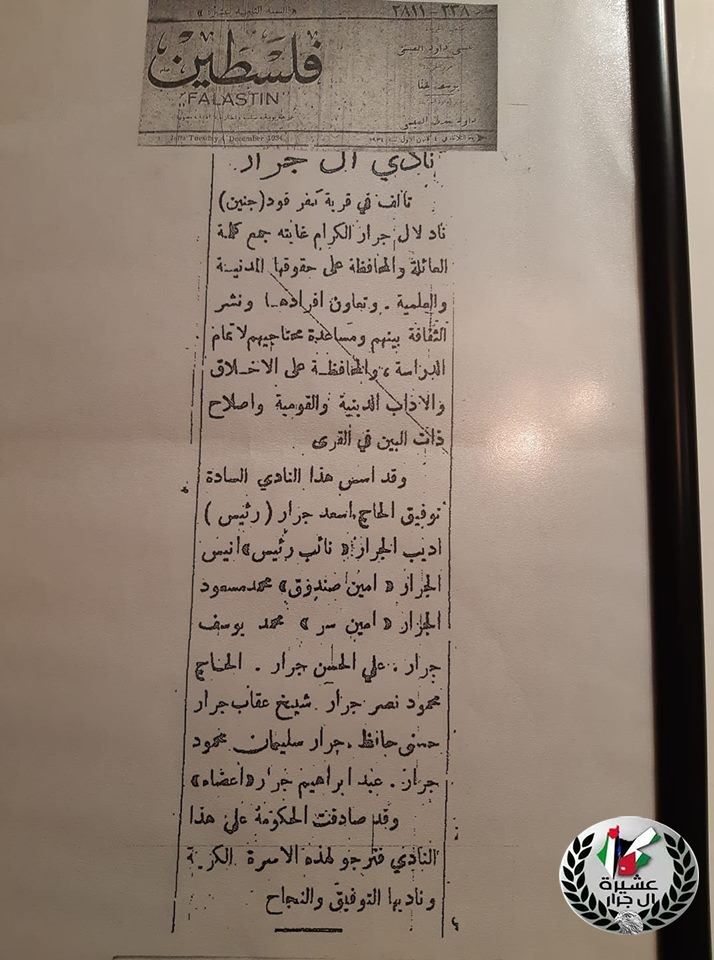 « السنة الثامنة عشرة »
٢٣٨ - ٢٨١١
عيسى داود العيسى
فلسطين
يوسف حنا
"FALASTIN"
Jaffa Tuesday 4 December 1934
نادي آل جرار
تألف في قرية كفر قود (جنين)
ناد لآل جرار الكرام غايته جمع كلمة
العائلة والمحافظة على حقوقها المدنية
والعلمية . وتعاون افرادها ونشر
الثقافة بينهم ومساعدة محتاجيهم لاتمام
الدراسة ، والمحافظة على الاخلاق
والاداب الدينية والقومية واصلاح
ذات البين في القرى
وقد اسس هذا النادي السادة
توفيق الحاج اسعد جرار ( رئيس )
اديب الجرار « نائب رئيس » انيس
الجرار « امين صندوق » محمد مسعود
الجرار « امين سر » محمد يوسف
جرار . علي الحسن جرار . الحاج
محمود نصر جرار شيخ عقاب جرار
حسني حافظ جرار سليمان محمود
جرار . عبد ابراهيم جرار « اعضاء »
وقد صادقت الحكومة على هذا
النادي فنرجو لهذه الاسرة الكريمة
وناديها التوفيق والنجاح
عشيرة
ال جرار